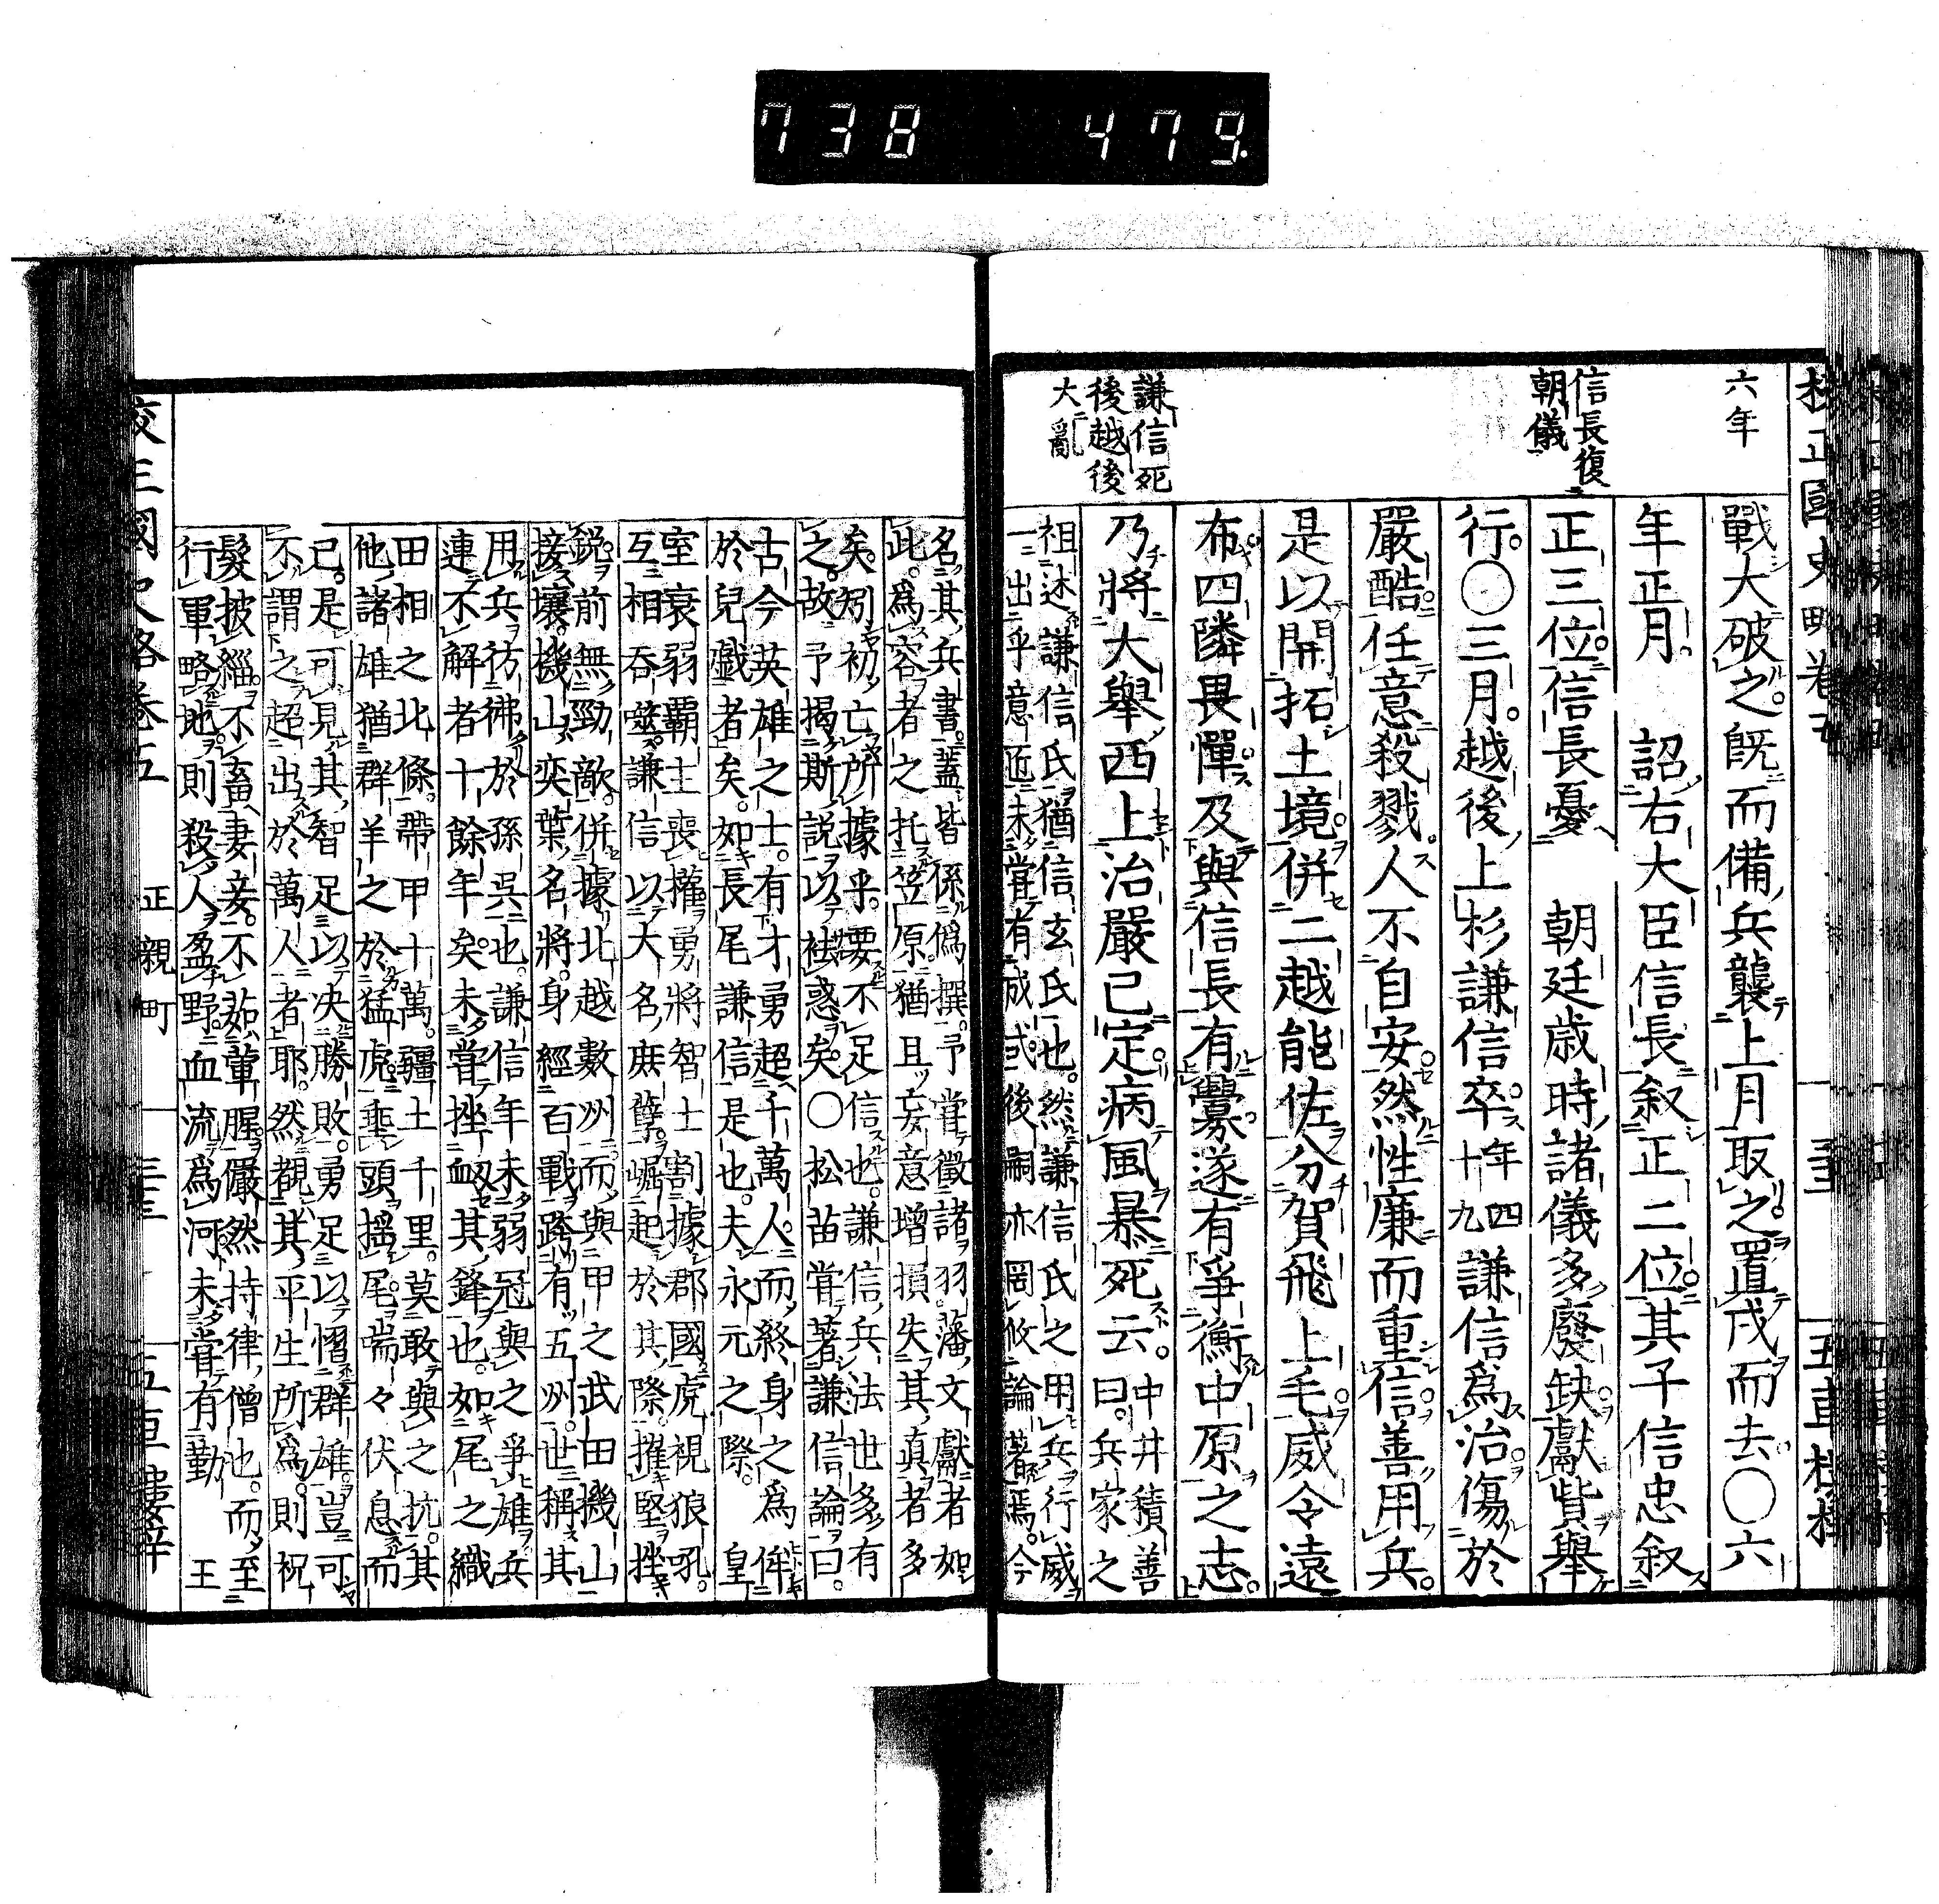 738 479
六年
信長復
朝儀
謙信死
後越後
大亂
戰大破之既而備兵襲上月取之置戍而去〇六
年正月 詔右大臣信長叙正二位其子信忠叙
正三位信長憂 朝廷歲時諸儀多廢缺獻貲舉
行〇三月越後上杉謙信卒年四十九謙信爲治傷於
嚴酷任意殺戮人不自安然性廉而重信善用兵
是以開拓土境併二越能佐分賀飛上毛威令遠
布四隣畏憚及與信長有釁遂有爭衡中原之志
乃將大舉西上治嚴已定病風暴死云中井積善曰兵家之
祖述謙信氏猶信玄氏也然謙信氏之用兵行威
一出乎意匠未嘗有成式後嗣亦罔攸論著焉今
名其兵書蓋皆係僞撰予嘗徵諸羽藩文獻者如
此爲容者之托笠原猶且妄意增損失其真者多
矣矧初亡所據乎要不足信也謙信兵法世多有
之故予揭斯說以袪惑矣〇松苗嘗著謙信論曰
古今英雄之士有才勇超千萬人而終身之爲侔
於兒戲者矣如長尾謙信是也夫永元之際皇
室衰弱覇主喪權勇將智士割據郡國虎視狼吼
互相吞噬謙信以大名庶孽崛起於其際摧堅挫
銳前無勁敵併據北越數州而與甲之武田機山
接壤機山奕葉名將身經百戰跨有五州世稱其
用兵彷彿於孫吳也謙信年未弱冠與之爭雄兵
連不解者十餘年矣未嘗挫衂其鋒也如尾之織
田相之北條帶甲十萬疆土千里莫敢與之抗其
他諸雄猶群羊之於猛虎垂頭搖尾喘々伏息而
已是可見其智足以决勝敗勇足以慴群雄豈可
不謂之超出於萬人者耶然觀其平生所爲則祝
髮披緇不畜妻妾不茹葷腥儼然持律僧也而至
行軍略地則殺人盈野血流爲河未嘗有勤 王
正親町
五車樓梓